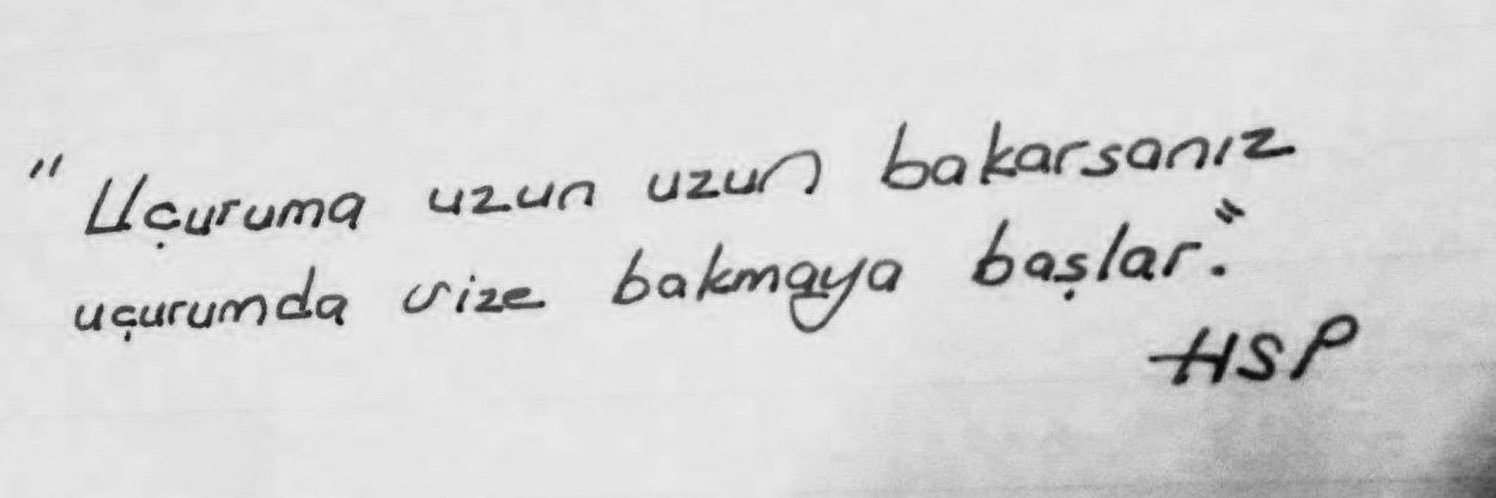 "Uçuruma uzun uzun bakarsanız
uçurumda size bakmaya başlar."
-HSP